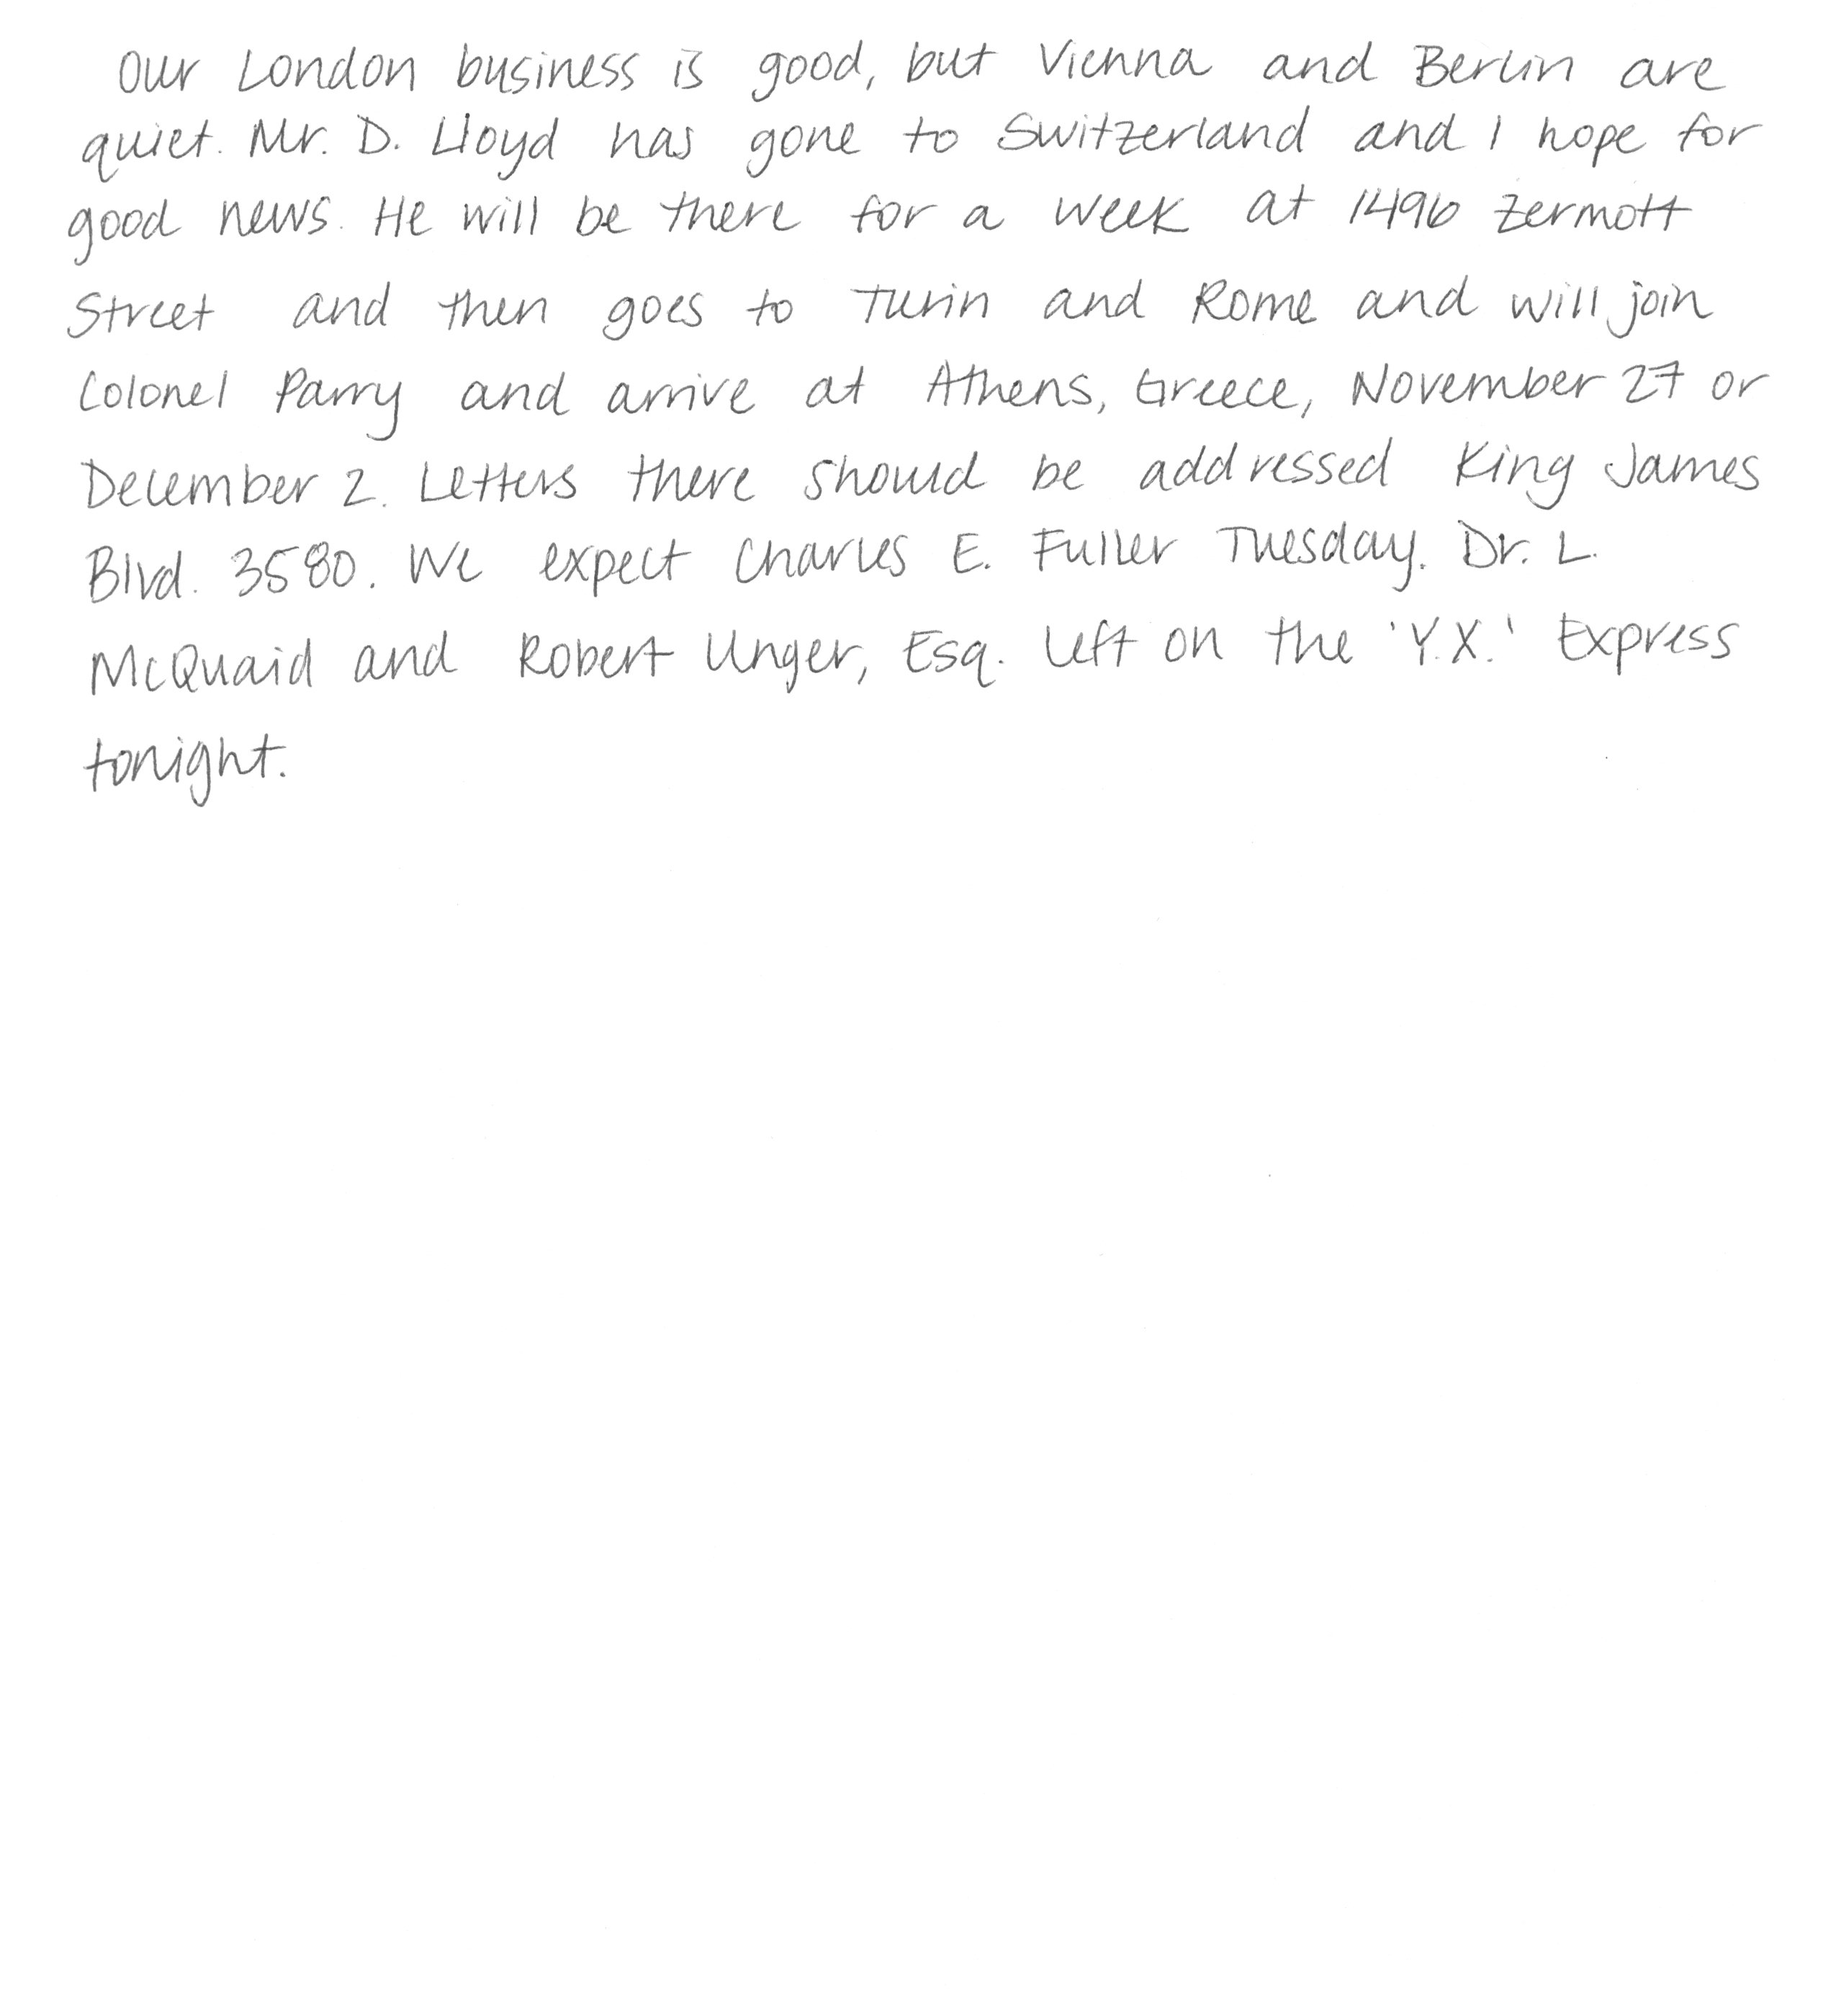 Our London business is good, but Vienna and Berlin are
quiet. Mr. D. Lloyd has gone to Switzerland and I hope for
good news. He will be there for a week at 1496 Zermott
Street and then goes to Turin and Rome and will join
Colonel Parry and arrive at Athens, Greece, November 27 or
December 2. Letters there should be addressed King James
Blvd. 3580. We expect Charles E. Fuller Tuesday. Dr. L.
McQuaid and Robert Unger, Esq. left on the 'Y.X.' Express
tonight.